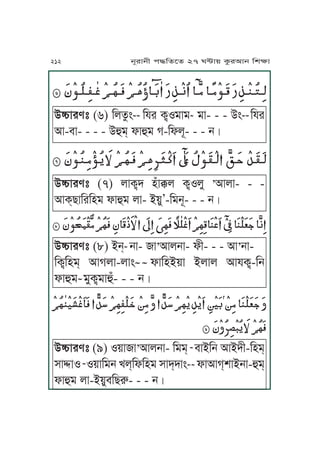 ২১২ নূরানী পদ্ধতিতে ২৭ ঘণ্টায় কুরআন শিক্ষা
لِتُنْذِرَ قَوْمًا مَّآ أُنْذِرَ اٰبَآؤُهُمْ فَهُمْ غٰفِلُوْنَ ۞
উচ্চারণঃ (৬) লিতুং-- যিরা ক্বওমাম- মা- - - উং--যিরা
আ-বা- - - - উহুম্ ফাহুম গ-ফিলূ- - - ন।
لَقَدْ حَقَّ الْقَوْلُ عَلٰٓى أَكْثَرِهِمْ فَهُمْ لَايُؤْمِنُوْنَ ۞
উচ্চারণঃ (৭) লাক্বদ হাঁক্কল ক্বওলু 'আলা- - -
আক্ছারিহিম ফাহুম লা- ইয়ু'-মিনূ- - - ন।
إِنَّا جَعَلْنَا فِىْٓ أَعْنَاقِهِمْ أَغْلٰلًا فَهِىَ إِلَى الْاَذْقَانِ فَهُمْ مُّقْمَحُوْنَ ۞
উচ্চারণঃ (৮) ইন্- না- জা'আলনা- ফী- - - আ'না-
ক্বিহিম্ আগলা-লাং~~ ফাহিইয়া ইলাল আযক্ব-নি
ফাহুম~মুক্বমাহূঁ- - - ন।
وَجَعَلْنَا مِنْۢ بَيْنِ أَيْدِيْهِمْ سَدًّا وَّمِنْ خَلْفِهِمْ سَدًّا فَأَغْشَيْنٰهُمْ
فَهُمْ لَايُبْصِرُوْنَ ۞
উচ্চারণঃ (৯) ওয়াজা'আলনা- মিম্ -বাইনি আইদী-হিম্
সাদ্দাও -ওয়ামিন খল্ফিহিম সাদ্দাং-- ফাআগ্শাইনা-হুম্
ফাহুম লা-ইয়ুবছিরূ- - - ন।